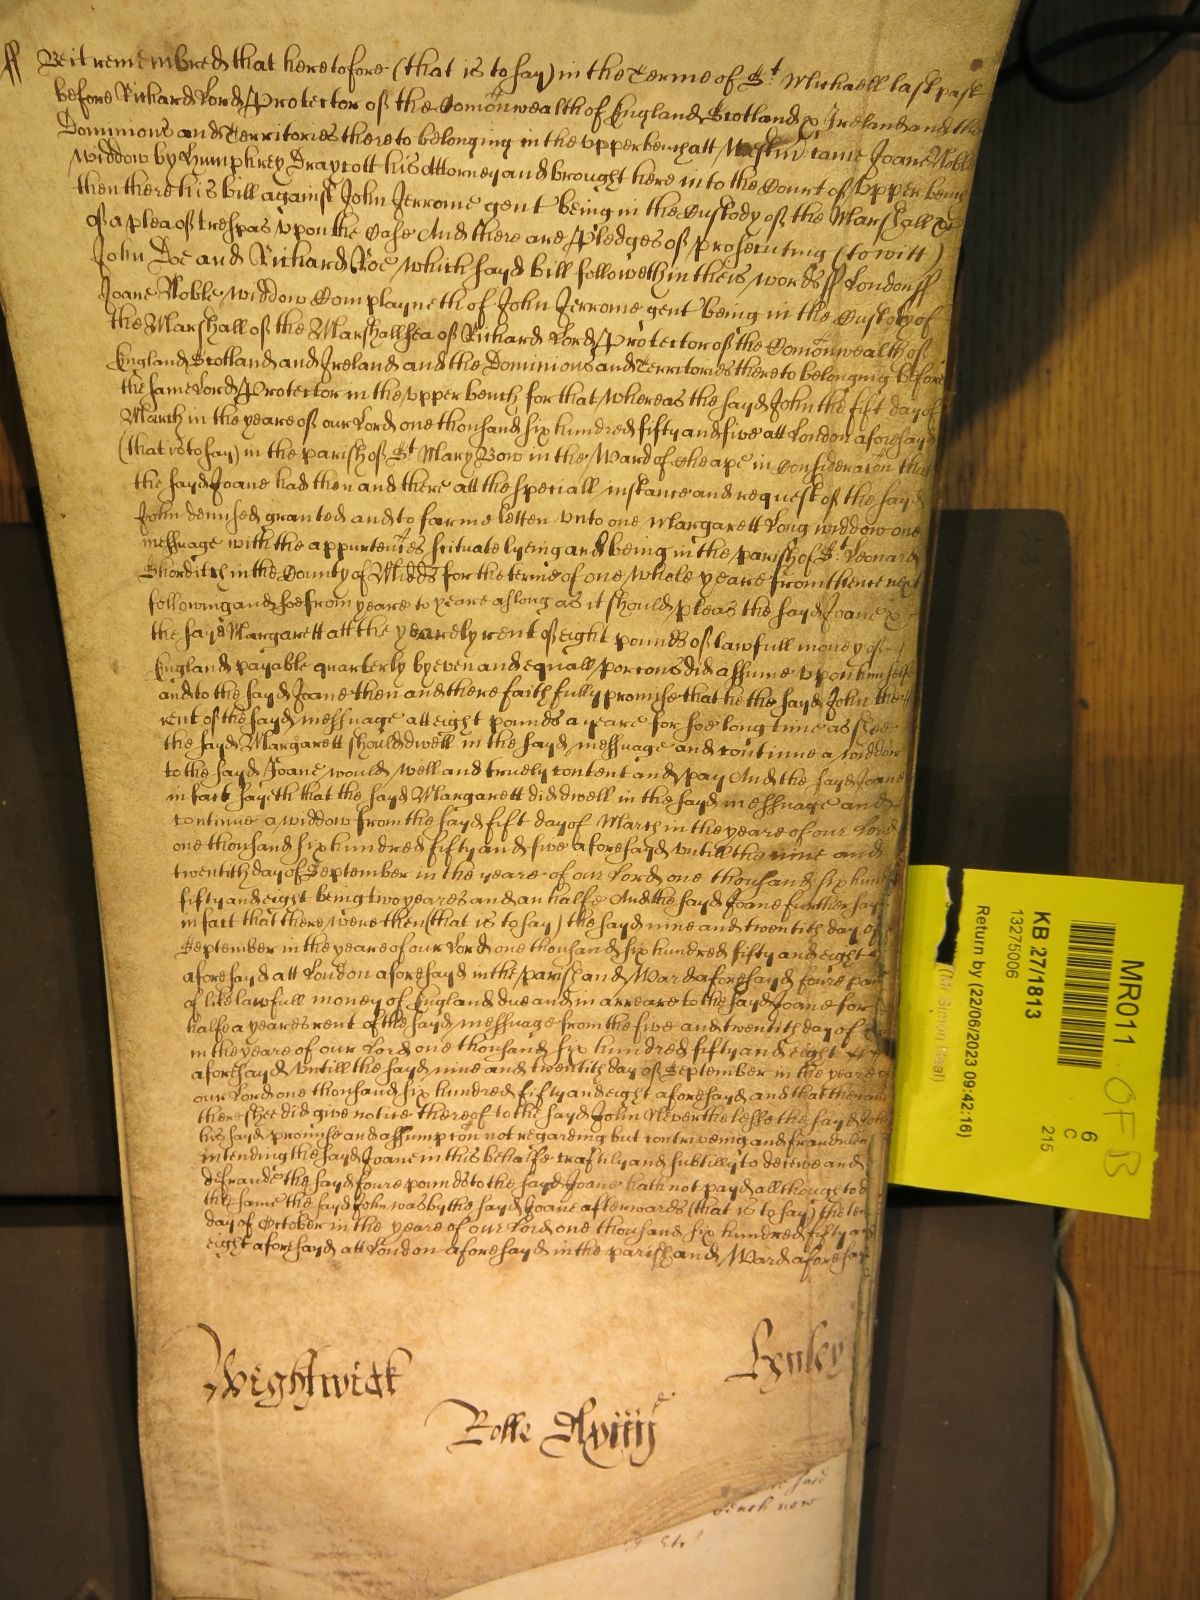 ff Be it remembred that heretofore (that is to say) in the Terme of St Michaell last past
before Richard Lord Protector of the Comonwealth of England Scotland & Ireland and the
Dominions and Territories thereto belonging in the upper bench att Westmr came Joane Noble
widdow by Humphrey Draycott his Attorney and brought here into the Court of upper bench
then there his bill against John Jerrome gent being in the Custody of the Marshall &c
of a plea of trespas upon the Case And there are Pledges of prosecuting (to witt)
John Doe and Richard Roe which sayd bill followeth in theis words ff London ff
Joane Noble widdow Complayneth of John Jerrome gent being in the Custody of
the Marshall of the Marshallsea of Richard Lord Protector of the Comonwealth of
England Scotland and Ireland and the Dominions and Territories thereto belonging before
the same Lord Protector in the upper bench for that whereas the sayd John the fift day of
March in the yeare of our Lord one thousand six hundred fifty and five att London aforesayd
(that is to say) in the parish of St Mary Bow in the Ward of Cheape in Consideracon that
the sayd Joane had then and there att the speciall instance and request of the sayd
John demised granted and to farme letten unto one Margarett Long widdow one
messuage with the appurtences scituate lyeing and being in the parish of St Leonard
Shorditch in the County of Midds for the terme of one whole yeare from thence next
following and soe from yeare to yeare as long as it should pleas the sayd Joane &
the sayd Margarett att the yearely rent of eight pounds of lawfull money of
England payable quarterly by even and equall porcons did assume upon himselfe
and to the sayd Joane then and there faithfully promise that he the sayd John the
rent of the sayd messuage att eight pounds a yeare for soe long time as shee
the sayd Margarett should dwell in the sayd messuage and continue a widdow
to the sayd Joane would well and truely content and pay And the sayd Joane
in fact sayeth that the sayd Margarett did dwell in the sayd messuage and
continue a widdow from the sayd fift day of March in the yeare of our Lord
one thousand six hundred fifty and five aforesayd untill the nine and
twentith day of September in the yeare of our Lord one thousand six hundred
fifty and eight being two yeares and an halfe And the sayd Joane further sayeth
in fact that there were then (that is to say) the sayd nine and twentith day of
September in the yeare of our Lord one thousand six hundred fifty and eight
aforesayd att London aforesayd in the parish and Ward aforesayd foure
of like lawfull money of England due and in arreare to the sayd Joane for
halfe a yeares rent of the sayd messuage from the five and twentith day of
in the yeare of our Lord one thousand six hundred fifty and eight
aforesayd untill the sayd nine and twentith day of September in the yeare of
our Lord one thousand six hundred fifty and eight aforesayd and that then and
there shee did give notice thereof to the sayd John Neverthelesse the sayd John
his sayd promise and assumpcon not regarding but contriveing and fraudulently
intending the sayd Joane in this behalfe craftily and subtilly to deceive and
defraude the sayd foure pounds to the sayd Joane hath not payd allthough to doe
the same the sayd John was by the sayd Joane afterwards (that is to say) the
day of October in the yeare of our Lord one thousand six hundred fifty and
eight aforesayd att London aforesayd in the parish and Ward aforesayd
Wightwick
Henley
Rolle
said
bench now
MR011 OF B
6
C
215
KB 27/1813
13275006
Return by (22/06/2023 09:42:16)